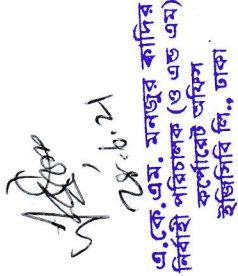 28.6.21
এ.কে.এম. মনজুর কাদির
নির্বাহী পরিচালক (ও এন্ড এম)
কর্পোরেট অফিস
ইজিসিবি লি., ঢাকা